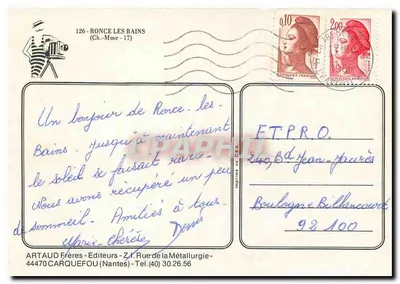 126 - RONCE LES BAINS
(Ch.-Mme - 17)
0,10
REPUBLIQUE FRANCAISE
2,00
Un bonjour de Ronce-les-
Bains. Jusqu'à maintenant
le soleil se faisait rare.
Nous avons récupéré un peu
de sommeil. Amitiés à tous.
Marie Thérèse Denis
E.T.P.R.O.
240, Bd Jean-Jaurès
Boulogne Billancourt
92100
Imprimé en C.E.E.
CPARAMA
ARTAUD Frères - Editeurs - Z.I. Rue de la Métallurgie -
44470 CARQUEFOU (Nantes) - Tel. (40) 30.26.56